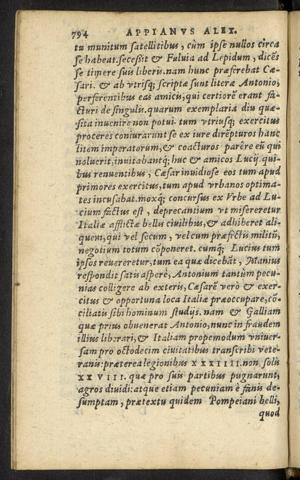 794 APPIANVS ALEX.
tu munitum satellitibus, cùm ipse nullos circa
se habeat. secessit & Fuluia ad Lepidum, dicēs
se timere suis liberis. nam hunc præferebat Cæ-
sari. & ab vtrisq; scripta sunt litera Antonio,
perferentibus eas amicis, qui certiorē erant fa-
cturi de singulis. quarum exemplaria diu quæ-
sita inuenire non potui. tum vtriusq; exercitus
proceres coniurarunt se ex iure direpturos hanc
litem imperatorum, & coacturos parêre eū qui
noluerit, inuitabantq; huc & amicos Lucij. qui-
bus renuentibus, Cæsar inuidiose eos tum apud
primores exercitus, tum apud vrbanos optima-
tes incusabat. moxq; concursus ex Vrbe ad Lu-
cium factus est, deprecantium vt misereretur
Italiæ afflictæ bellis ciuilibus, & adhiberet ali-
quem, qui vel secum, vel cum præfectis militū,
negotium totum cōponeret. cumq; Lucius tum
ipsos reuereretur, tum ea quæ dicebāt, Manius
respondit satis asperè, Antonium tantùm pecu-
nias colligere ab exteris, Cæsarē verò & exer-
citus & opportuna loca Italiæ præoccupare, cō-
ciliatis sibi hominum studijs. nam & Galliam
quæ prius obuenerat Antonio, nunc in fraudem
illius librari, & Italiam propemodum vniuer-
sam pro octodecim ciuitatibus transcribi vete-
ranis: præterea legionibus XXXIIII. non solis
XXVIII. quæ pro suis partibus pugnarunt,
agros diuidi: atque etiam pecuniam è fanis de-
sumptam, prætextu quidem Pompeiani belli,
quod